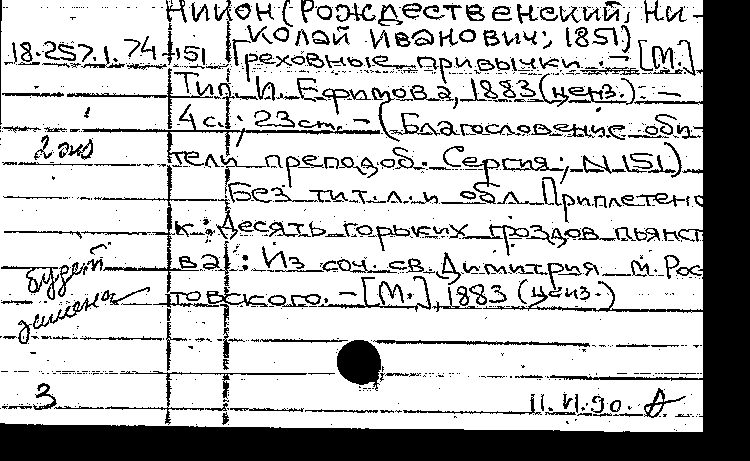 Никон (Рождественский, Ни-
колай Иванович; 1851)
18.257.1.74-151 Греховные привычки. - [М.]
Тип. И. Ефимова, 1883 (ценз.). -
4 с.; 23 см. - (Благословение оби-
2 экз
тели преподоб. Сергия; N 151)
Без тит. л. и обл. Приплетено
к: Десять горьких гроздов пьянст
ва: Из соч. св. Димитрия м. Рос
будет
товского. - [М.], 1883 (ценз.)
замена
3
11.VI.90.